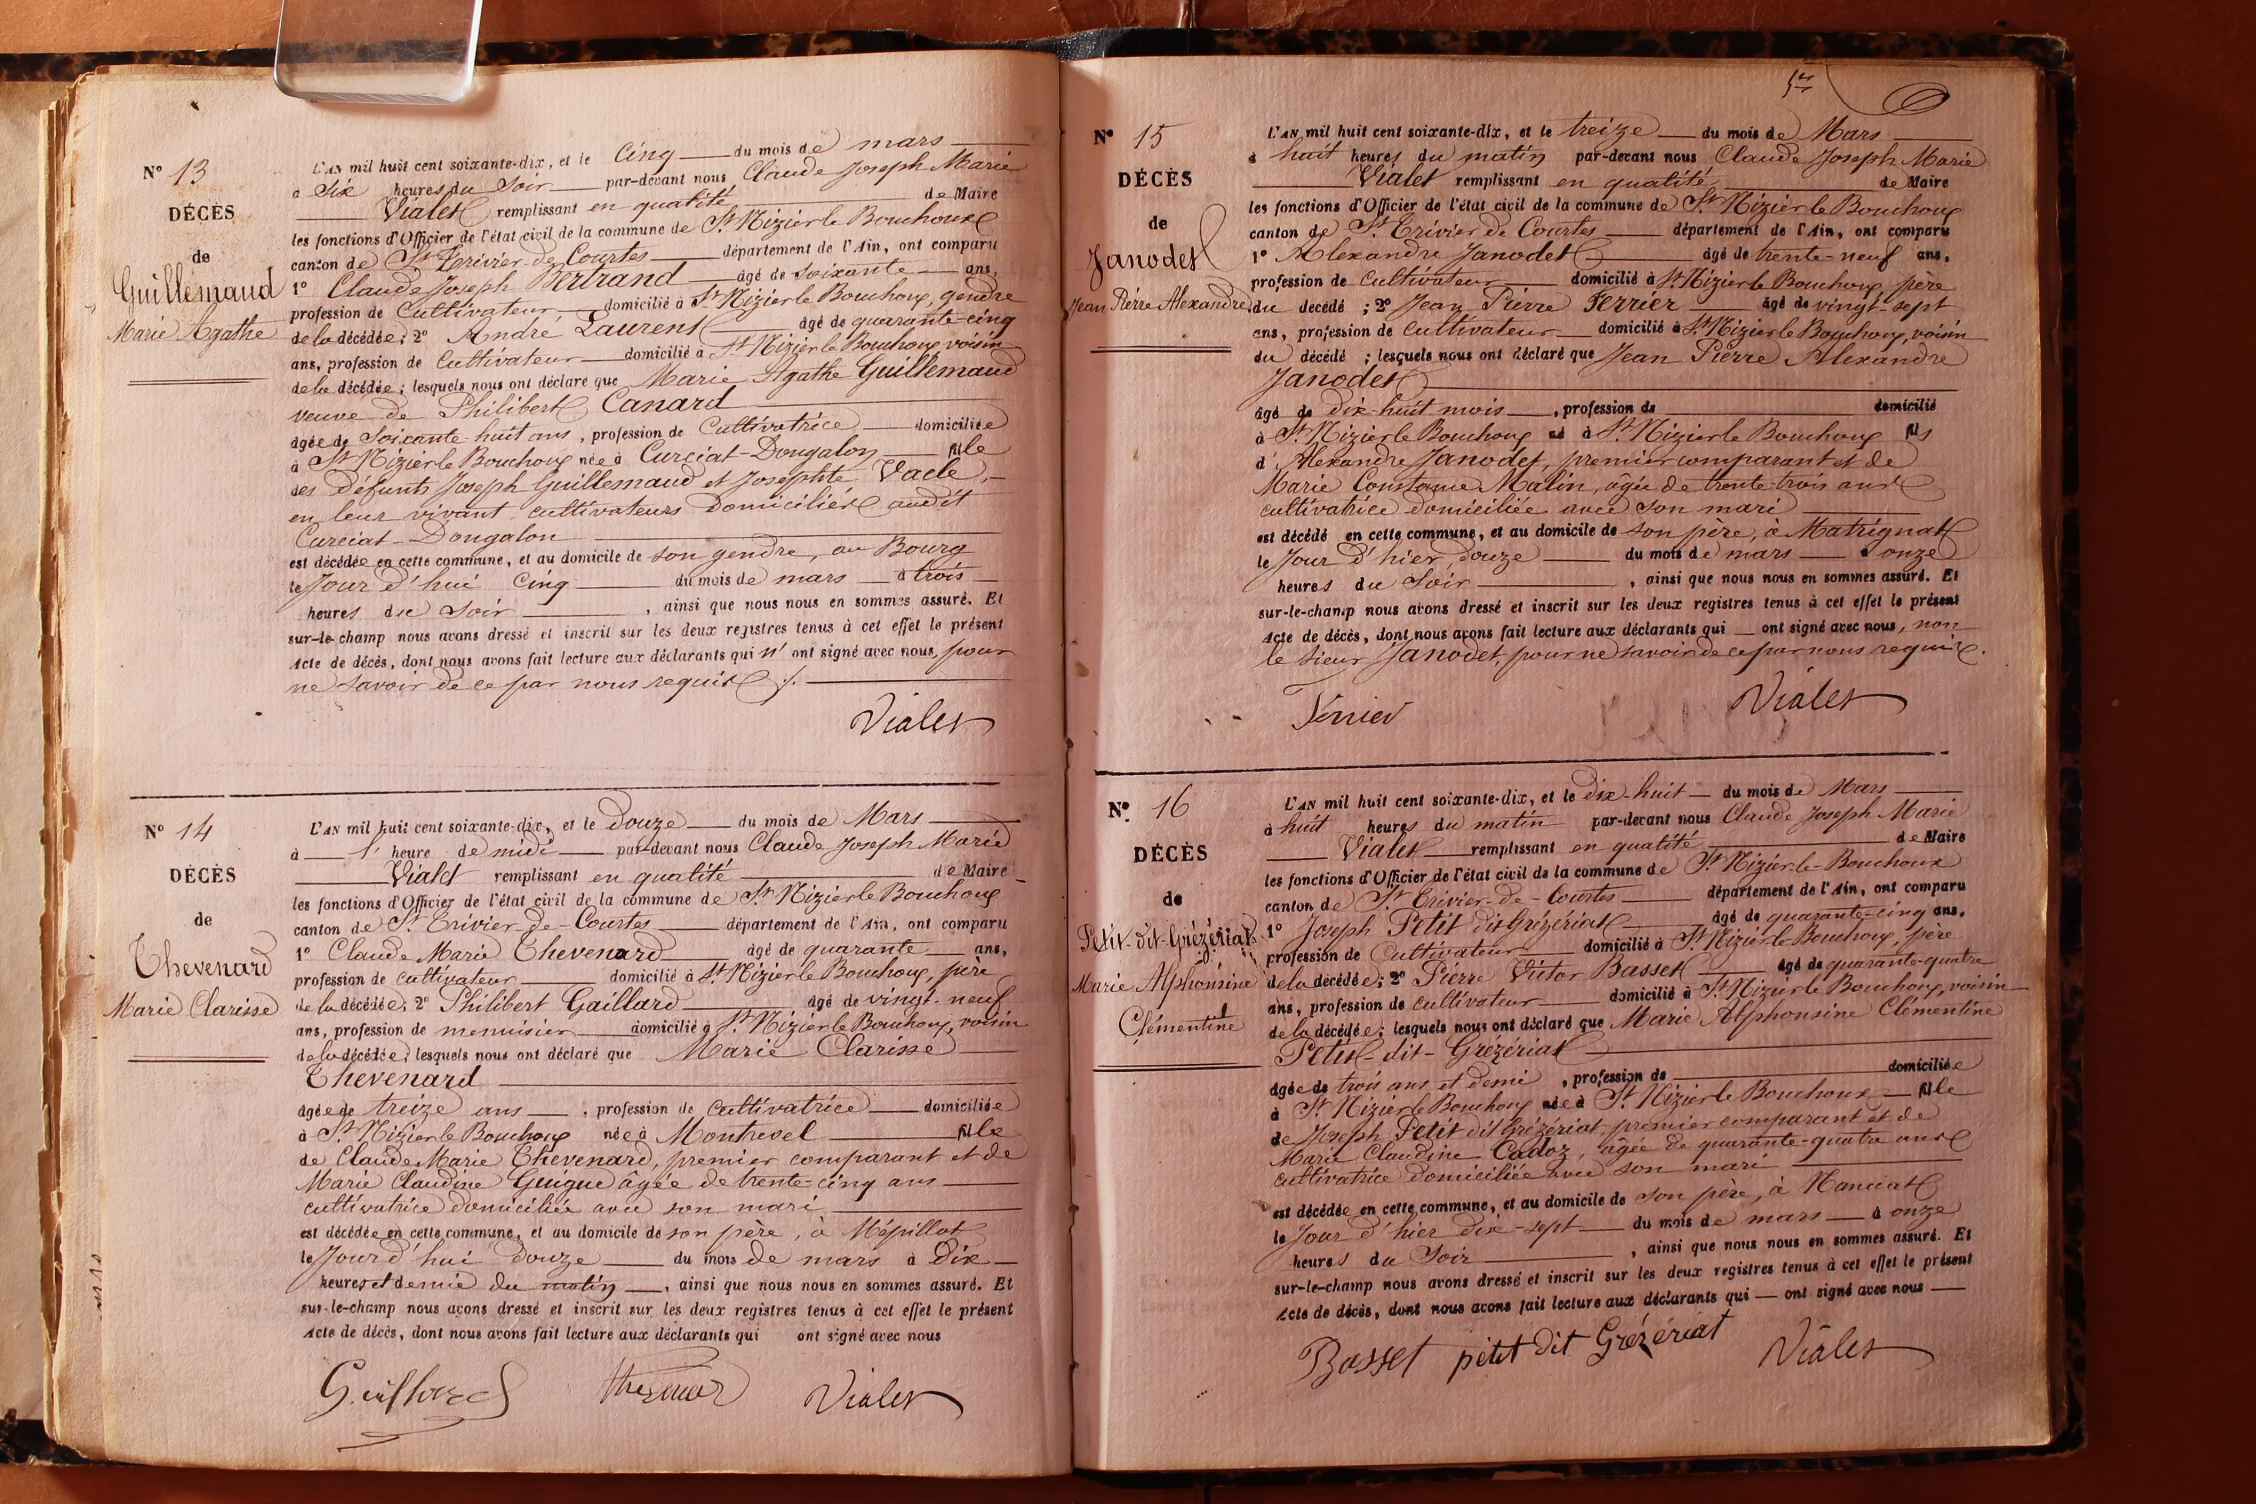 N° 13
DÉCÈS
de
Guillemaud
Marie Agathe
L'AN mil huit cent soixante-dix, et le Cinq du mois de mars
à Six heures du Soir par-devant nous Claude Joseph Marie
Vialet remplissant en qualité de Maire
les fonctions d'Officier de l'état civil de la commune de St Nizier le Bouchoux
canton de St Trivier-de-Courtes département de l'Ain, ont comparu
1° Claude Joseph Bertrand âgé de soixante ans,
profession de Cultivateur domicilié à St Nizier le Bouchoux, gendre
de la décédée; 2° André Laurent âgé de quarante-cinq
ans, profession de Cultivateur domicilié à St Nizier le Bouchoux voisin
de la décédée; lesquels nous ont déclaré que Marie Agathe Guillemaud
veuve de Philibert Canard
âgée de Soixante-huit ans, profession de Cultivatrice domiciliée
à St Nizier le Bouchoux née à Curciat-Dongalon fille
des défunts Joseph Guillemaud et Josephte Vacle,
en leur vivant cultivateurs domiciliés audit
Curciat-Dongalon
est décédée en cette commune, et au domicile de son gendre, au Bourg
le Jour d'hui Cinq du mois de mars à trois
heures du Soir, ainsi que nous nous en sommes assuré. Et
sur-le-champ nous avons dressé et inscrit sur les deux registres tenus à cet effet le présent
Acte de décès, dont nous avons fait lecture aux déclarants qui n'ont signé avec nous, pour
ne savoir de ce par nous requis ./.
Vialet
N° 14
DÉCÈS
de
Thevenard
Marie Clarisse
L'AN mil huit cent soixante-dix, et le douze du mois de Mars
à 1' heure de midi par-devant nous Claude Joseph Marie
Vialet remplissant en qualité de Maire
les fonctions d'Officier de l'état civil de la commune de St Nizier le Bouchoux
canton de St Trivier-de-Courtes département de l'Ain, ont comparu
1° Claude Marie Thevenard âgé de quarante ans,
profession de cultivateur domicilié à St Nizier le Bouchoux, père
de la décédée; 2° Philibert Gaillard âgé de vingt-neuf
ans, profession de menuisier domicilié à St Nizier le Bouchoux, voisin
de la décédée; lesquels nous ont déclaré que Marie Clarisse
Thevenard
âgée de treize ans, profession de cultivatrice domiciliée
à St Nizier le Bouchoux née à Montrevel fille
de Claude Marie Thevenard, premier comparant et de
Marie Claudine Guigue âgée de trente-cinq ans
cultivatrice domiciliée avec son mari
est décédée en cette commune, et au domicile de son père, à Mépillat
le Jour d'hui douze du mois de mars à Dix
heures et demie du matin, ainsi que nous nous en sommes assuré. Et
sur-le-champ nous avons dressé et inscrit sur les deux registres tenus à cet effet le présent
Acte de décès, dont nous avons fait lecture aux déclarants qui ont signé avec nous
Gaillard Thevenard Vialet
5
N° 15
DÉCÈS
de
Janodet
Jean Pierre Alexandre
L'AN mil huit cent soixante-dix, et le treize du mois de Mars
à huit heures du matin par-devant nous Claude Joseph Marie
Vialet remplissant en qualité de Maire
les fonctions d'Officier de l'état civil de la commune de St Nizier le Bouchoux
canton de St Trivier de Courtes département de l'Ain, ont comparu
1° Alexandre Janodet âgé de trente-neuf ans,
profession de Cultivateur domicilié à St Nizier le Bouchoux père
du décédé; 2° Jean Pierre Ferrier âgé de vingt-sept
ans, profession de Cultivateur domicilié à St Nizier le Bouchoux, voisin
du décédé; lesquels nous ont déclaré que Jean Pierre Alexandre
Janodet
âgé de dix-huit mois, profession de domicilié
à St Nizier le Bouchoux né à St Nizier le Bouchoux fils
d'Alexandre Janodet, premier comparant et de
Marie Constance Malin, âgée de trente-trois ans
cultivatrice domiciliée avec son mari
est décédé en cette commune, et au domicile de son père, à Matrignat
le Jour d'hier, douze du mois de mars à onze
heures du Soir, ainsi que nous nous en sommes assuré. Et
sur-le-champ nous avons dressé et inscrit sur les deux registres tenus à cet effet le présent
Acte de décès, dont nous avons fait lecture aux déclarants qui ont signé avec nous, non
le sieur Janodet, pour ne savoir de ce par nous requis.
Ferrier Vialet
N° 16
DÉCÈS
de
Petit-dit-Grézériat
Marie Alphonsine
Clémentine
L'AN mil huit cent soixante-dix, et le dix-huit du mois de Mars
à huit heures du matin par-devant nous Claude Joseph Marie
Vialet remplissant en qualité de Maire
les fonctions d'Officier de l'état civil de la commune de St Nizier-le-Bouchoux
canton de St Trivier-de-Courtes département de l'Ain, ont comparu
1° Joseph Petit dit Grézériat âgé de quarante-cinq ans,
profession de Cultivateur domicilié à St Nizier le Bouchoux, père
de la décédée; 2° Pierre Victor Basset âgé de quarante-quatre
ans, profession de cultivateur domicilié à St Nizier le Bouchoux, voisin
de la décédée; lesquels nous ont déclaré que Marie Alphonsine Clémentine
Petit-dit-Grézériat
âgée de trois ans et demi, profession de domiciliée
à St Nizier le Bouchoux née à St Nizier le Bouchoux fille
de Joseph Petit dit Grézériat, premier comparant et de
Marie Claudine Cadoz, âgée de quarante-quatre ans
cultivatrice domiciliée avec son mari
est décédée en cette commune, et au domicile de son père, à Manciat
le Jour d'hier dix-sept du mois de mars à onze
heures du Soir, ainsi que nous nous en sommes assuré. Et
sur-le-champ nous avons dressé et inscrit sur les deux registres tenus à cet effet le présent
Acte de décès, dont nous avons fait lecture aux déclarants qui ont signé avec nous
Basset petit dit Grézériat Vialet